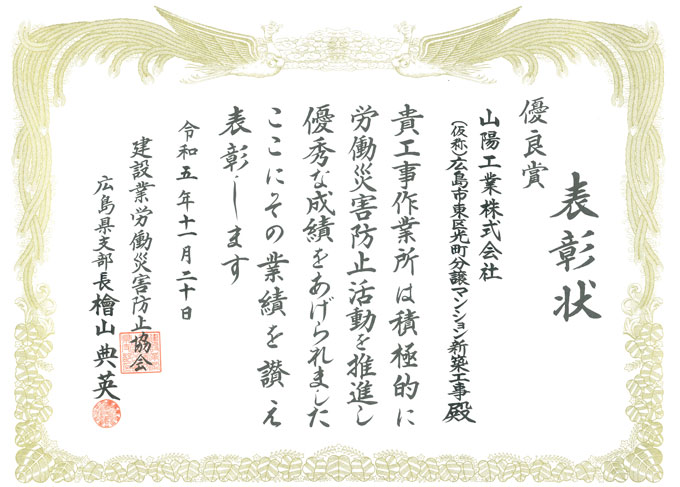 表彰状
優良賞
山陽工業株式会社
(仮称)広島市東区光町分譲マンション新築工事 殿
貴工事作業所は積極的に
労働災害防止活動を推進し
優秀な成績をあげられました
ここにその業績を讃え
表彰します
令和五年十一月二十日
建設業労働災害防止協会
広島県支部長 檜山典英